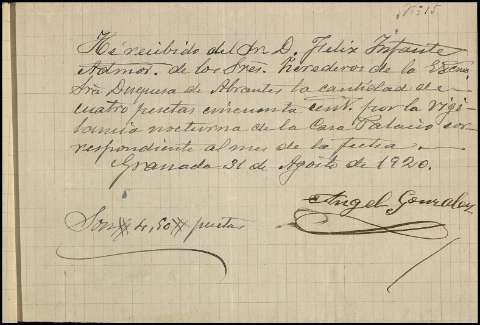 Nº 15
He recibido del Sr. D. Felix Infante
Admor. de los Sres. herederos de la Excma.
Sra Duquesa de Abrantes la cantidad de
cuatro pesetas cincuenta cent. por la vigi
lancia nocturna de la Casa Palacio cor
respondiente al mes de la fecha.
Granada 31 de Agosto de 1920.
Angel Gonzalez
Son # 4,50 # pesetas